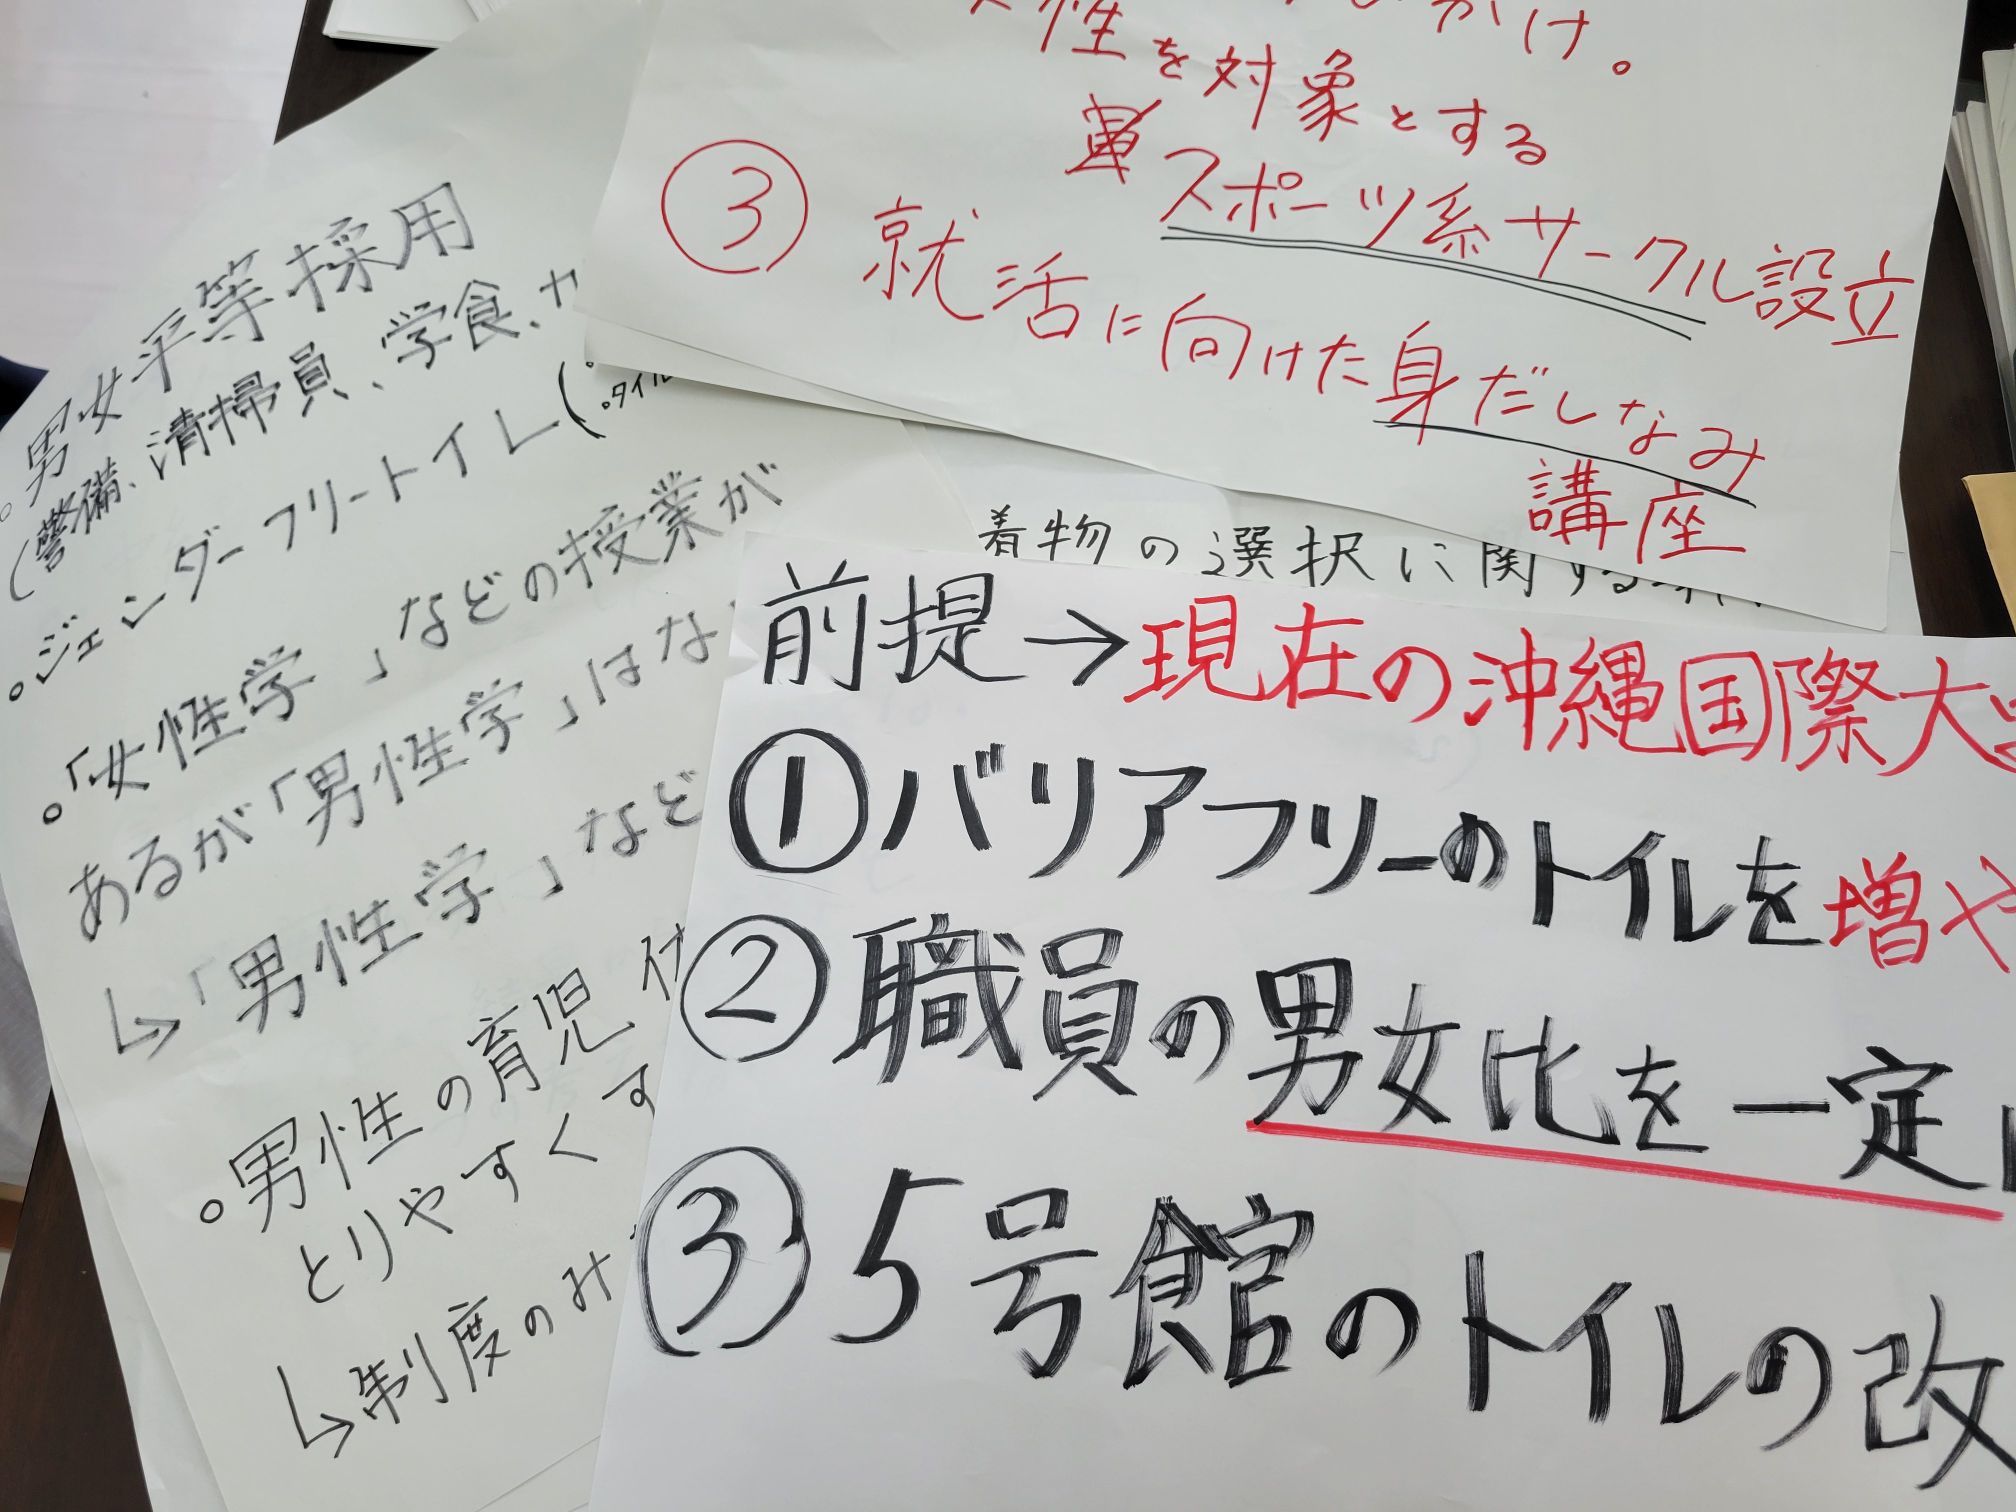 性を対象とする
スポーツ系サークル設立
③ 就活に向けた身だしなみ
講座
着物の選択に関する
。男女平等採用
(警備、清掃員、学食、カ
。ジェンダーフリートイレ(
。タイル
。「女性学」などの授業が
あるが「男性学」はな
↳「男性学」など
。男性の育児
とりやすくす
↳制度のみ
前提→現在の沖縄国際大
①バリアフリーのトイレを増や
②職員の男女比を一定
③5号館のトイレの改